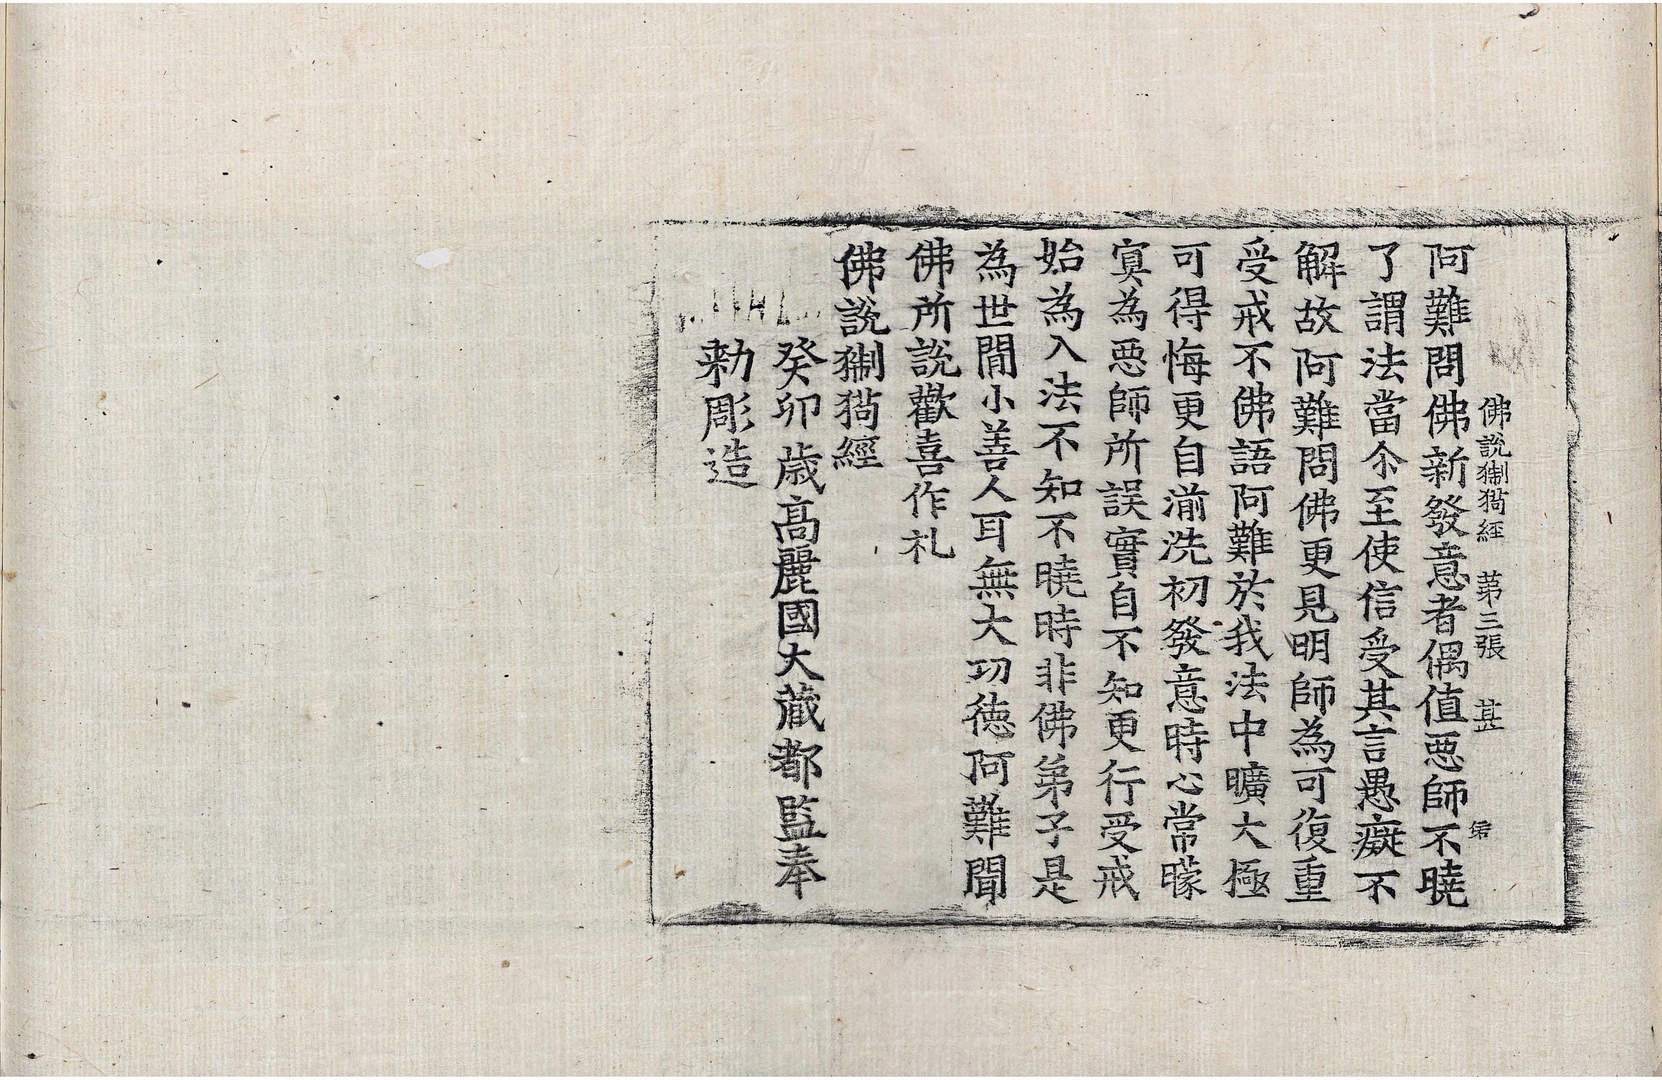 佛說猘狗經　第三張　甚
阿難問佛新發意者偶值惡師不曉
了謂法當尒至使信受其言愚癡不
解故阿難問佛更見明師為可復重
受戒不佛語阿難於我法中曠大極
可得悔更自湔洗初發意時心常曚
冥為惡師所誤實自不知更行受戒
始為入法不知不曉時非佛弟子是
為世間小善人耳無大功德阿難聞
佛所說歡喜作礼
佛說猘狗經
癸卯歲高麗國大藏都監奉
勅彫造